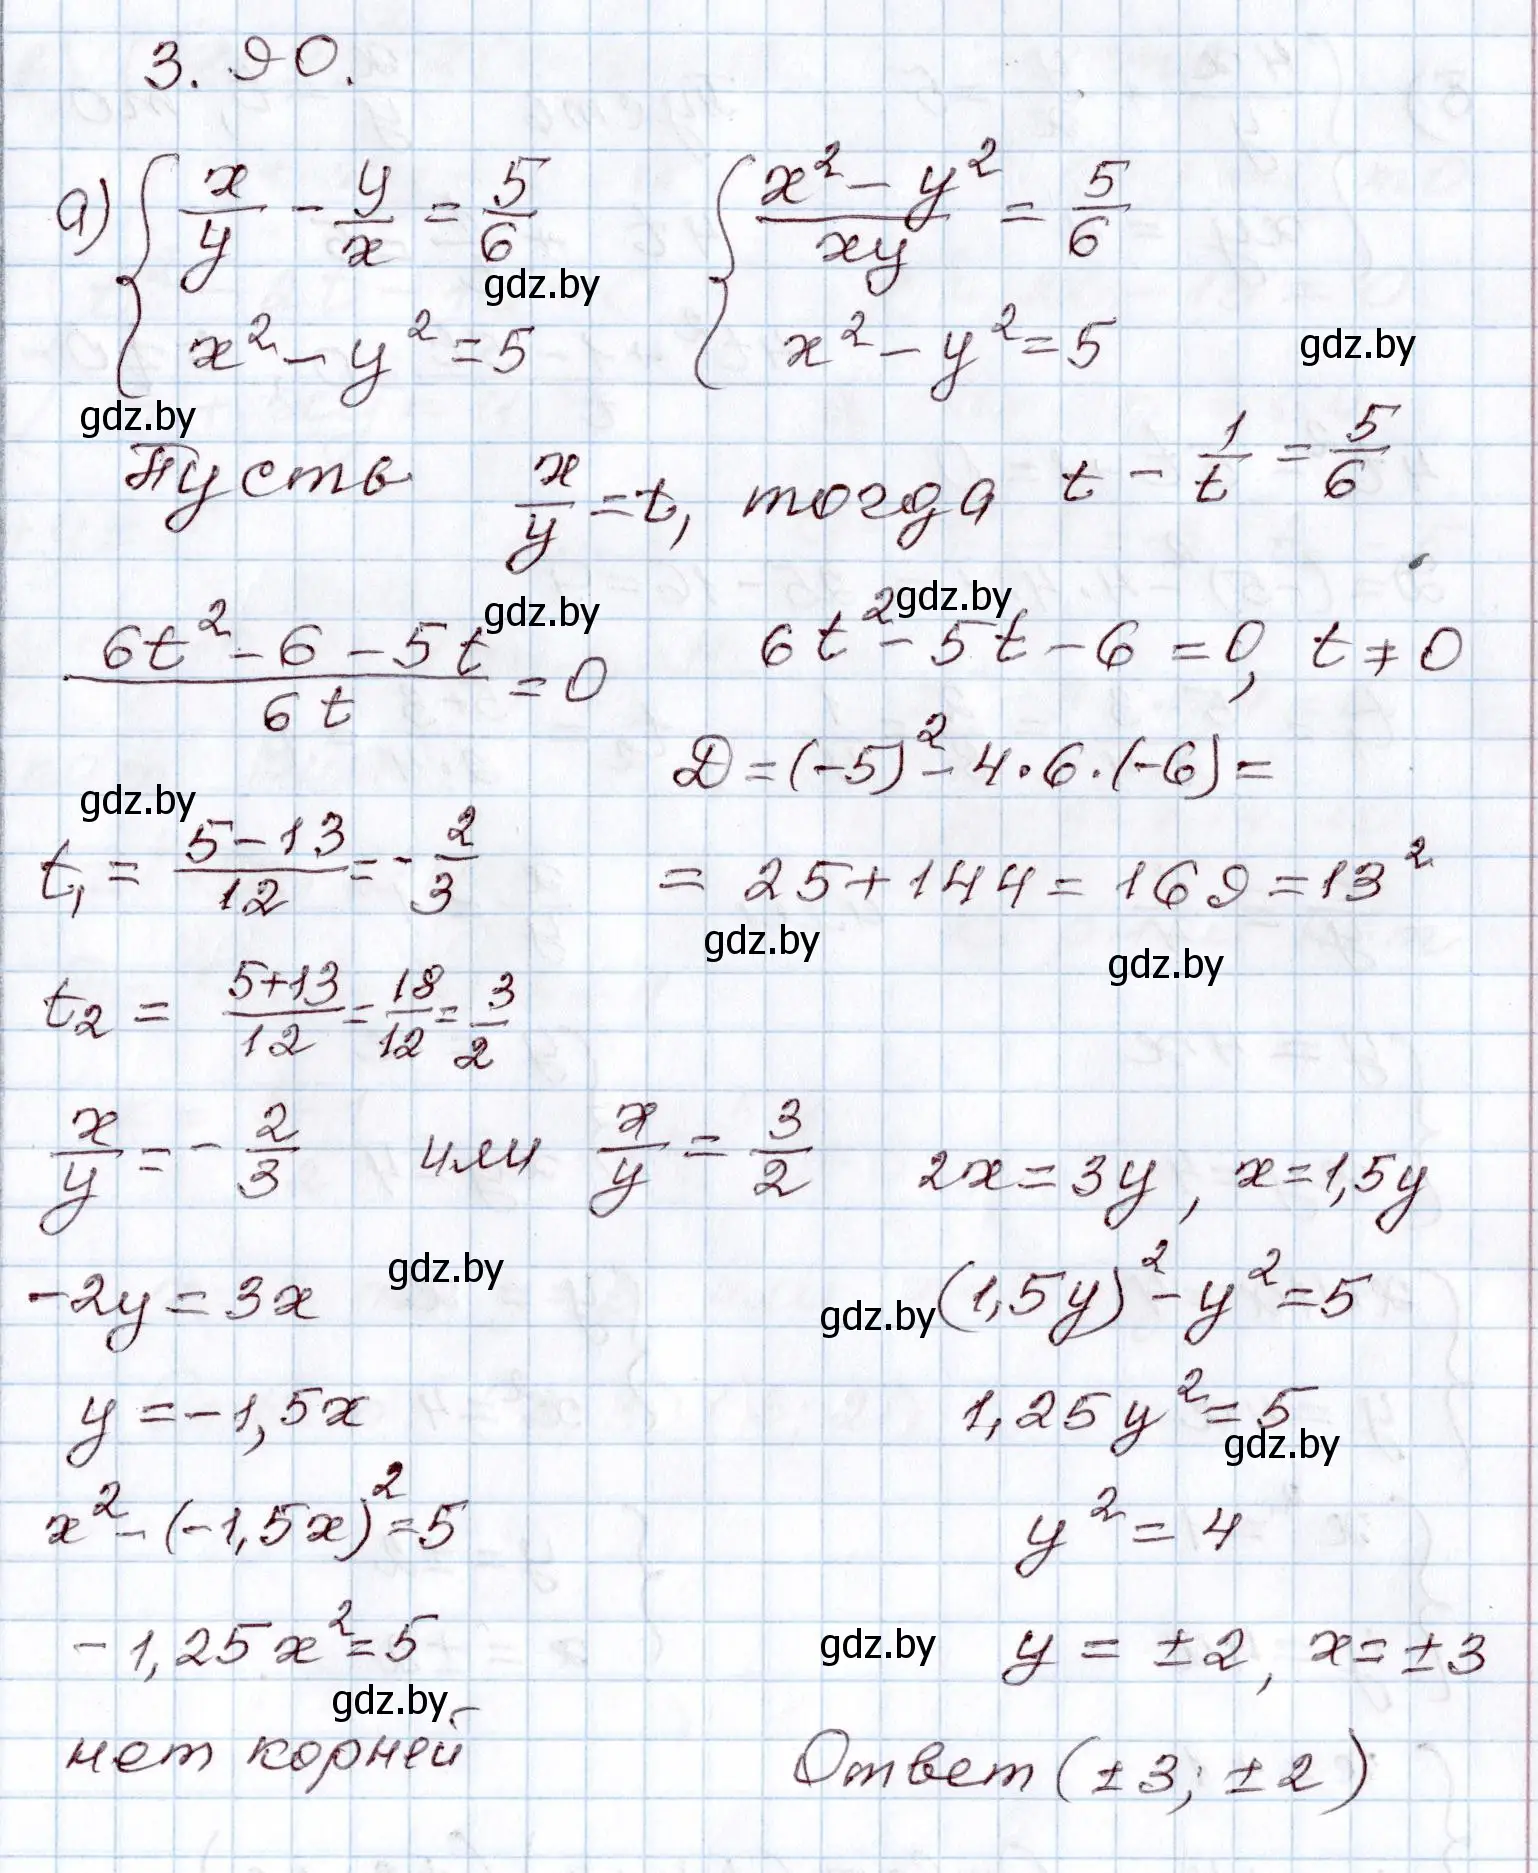 3.90.
а) { x/y - y/x = 5/6   { (x² - y²)/xy = 5/6
gdz.by
x² - y² = 5   x² - y² = 5
gdz.by
gdz.by
Пусть x/y = t, тогда t - 1/t = 5/6
gdz.by gdz.by
(6t² - 6 - 5t)/6t = 0   6t² - 5t - 6 = 0, t ≠ 0
D = (-5)² - 4·6·(-6) =
gdz.by
t₁ = (5-13)/12 = -2/3   = 25 + 144 = 169 = 13²
gdz.by gdz.by
t₂ = (5+13)/12 = 18/12 = 3/2
x/y = -2/3 или x/y = 3/2   2x = 3y, x = 1,5y
gdz.by
-2y = 3x   (1,5y)² - y² = 5
gdz.by
y = -1,5x   1,25y² = 5
gdz.by
x² - (-1,5x)² = 5   y² = 4
-1,25x² = 5   y = ±2, x = ±3
gdz.by
gdz.by
нет корней   Ответ (±3; ±2)